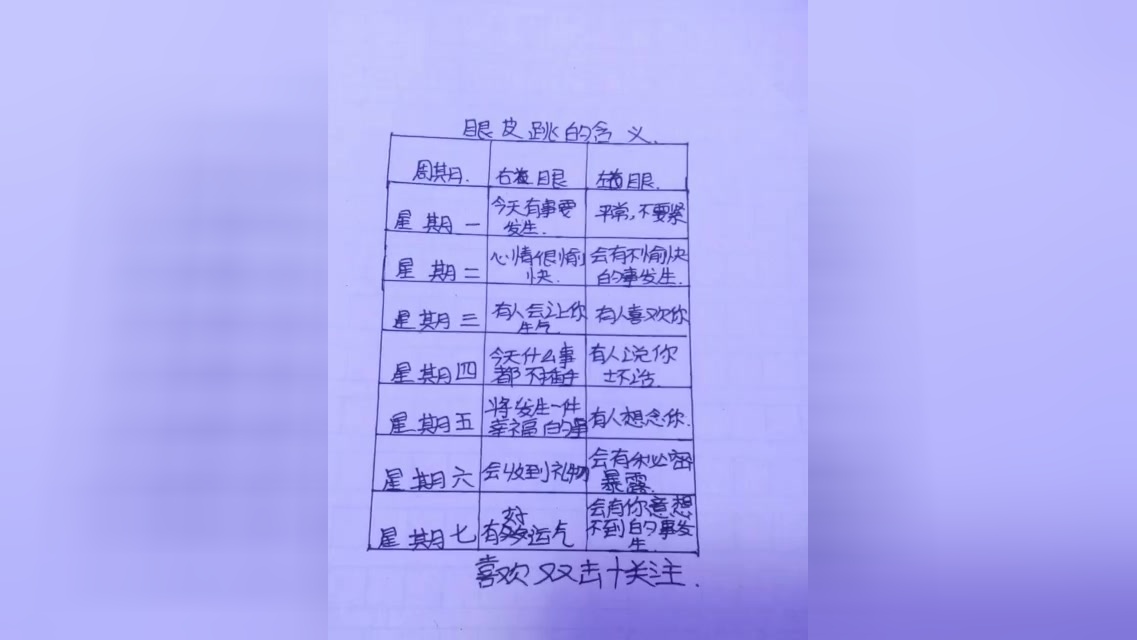 眼皮跳的含义.
周期月. 右眼 左眼.
星期一 今天有事要发生. 平常,不要紧
星期二 心情很愉快. 会有不愉快的事发生.
星期三 有人会让你生气 有人喜欢你
星期四 今天什么事都不插手 有人说你坏话.
星期五 将发生一件幸福的事 有人想念你.
星期六 会收到礼物 会有秘密暴露.
星期七 有好运气 会有你意想不到的事发生
喜欢双击+关注.